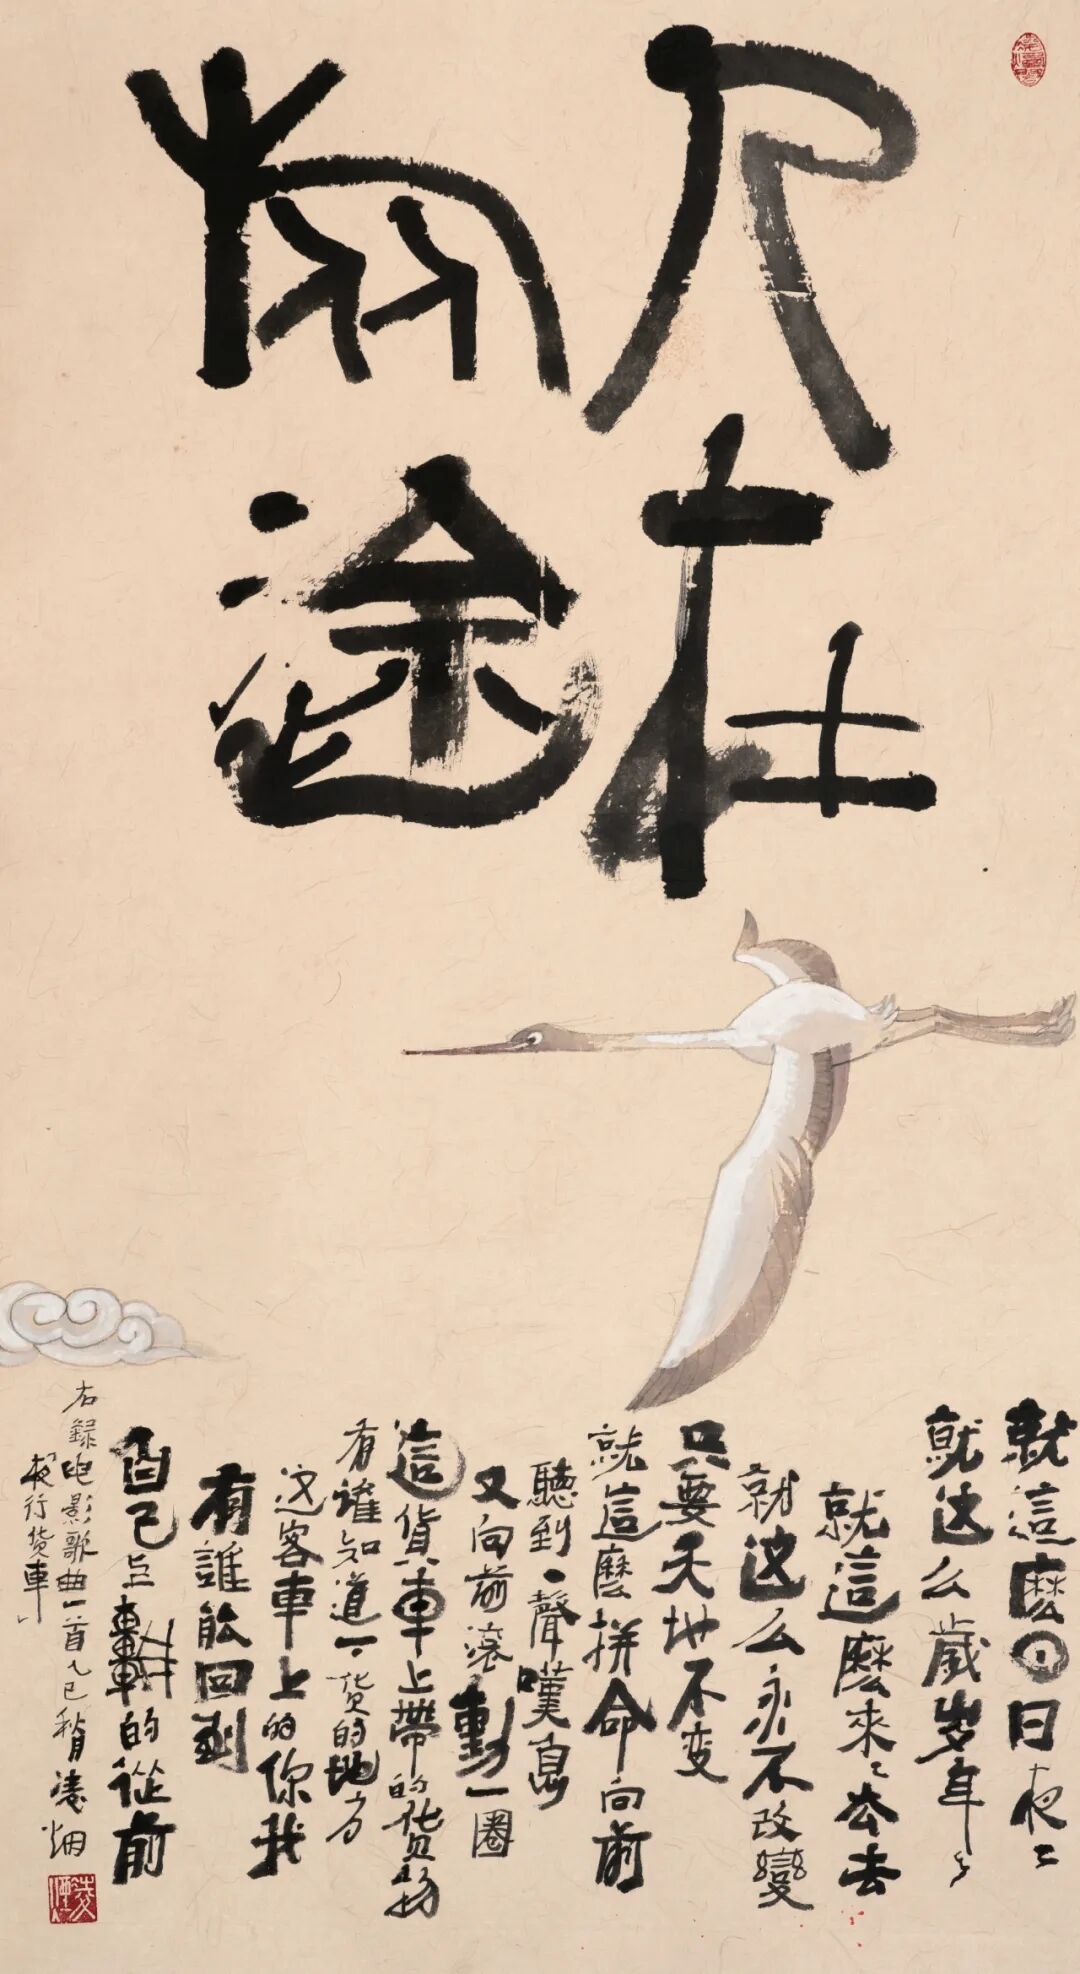 人在
旅途
就這麼日日夜〻
就这么歲岁年〻
就這麼來〻去去
就这么永不改變
只要天地不变
就這麼拼命向前
聽到一聲嘆息
又向前滚動一圈
這貨車上帶的货物
有誰知道一货的地方
这客車上的你我
有誰能回到
自己的從前
右録电影歌曲一首
「夜行货車」
乙巳凌烟